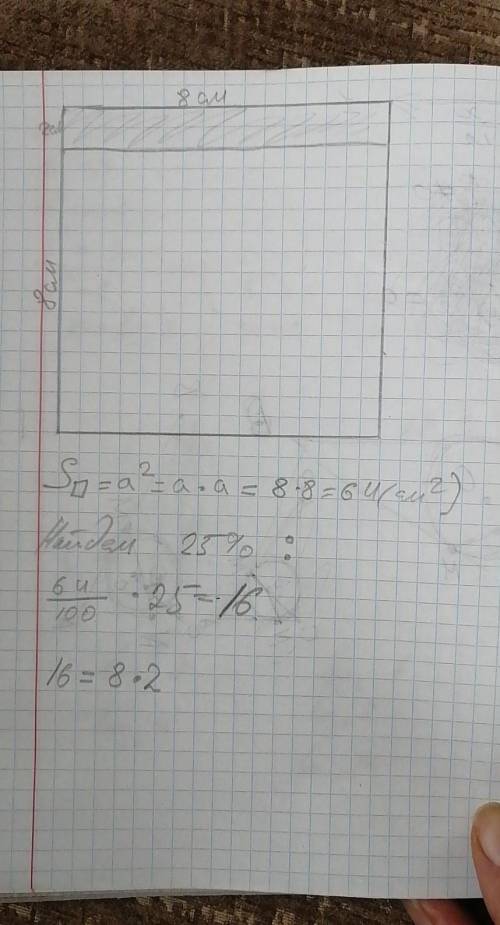 8 см
2см
8см
S□ = a² = a · a = 8 · 8 = 64(см²)
Найдем 25% :
64/100 · 25 = 16
16 = 8 · 2